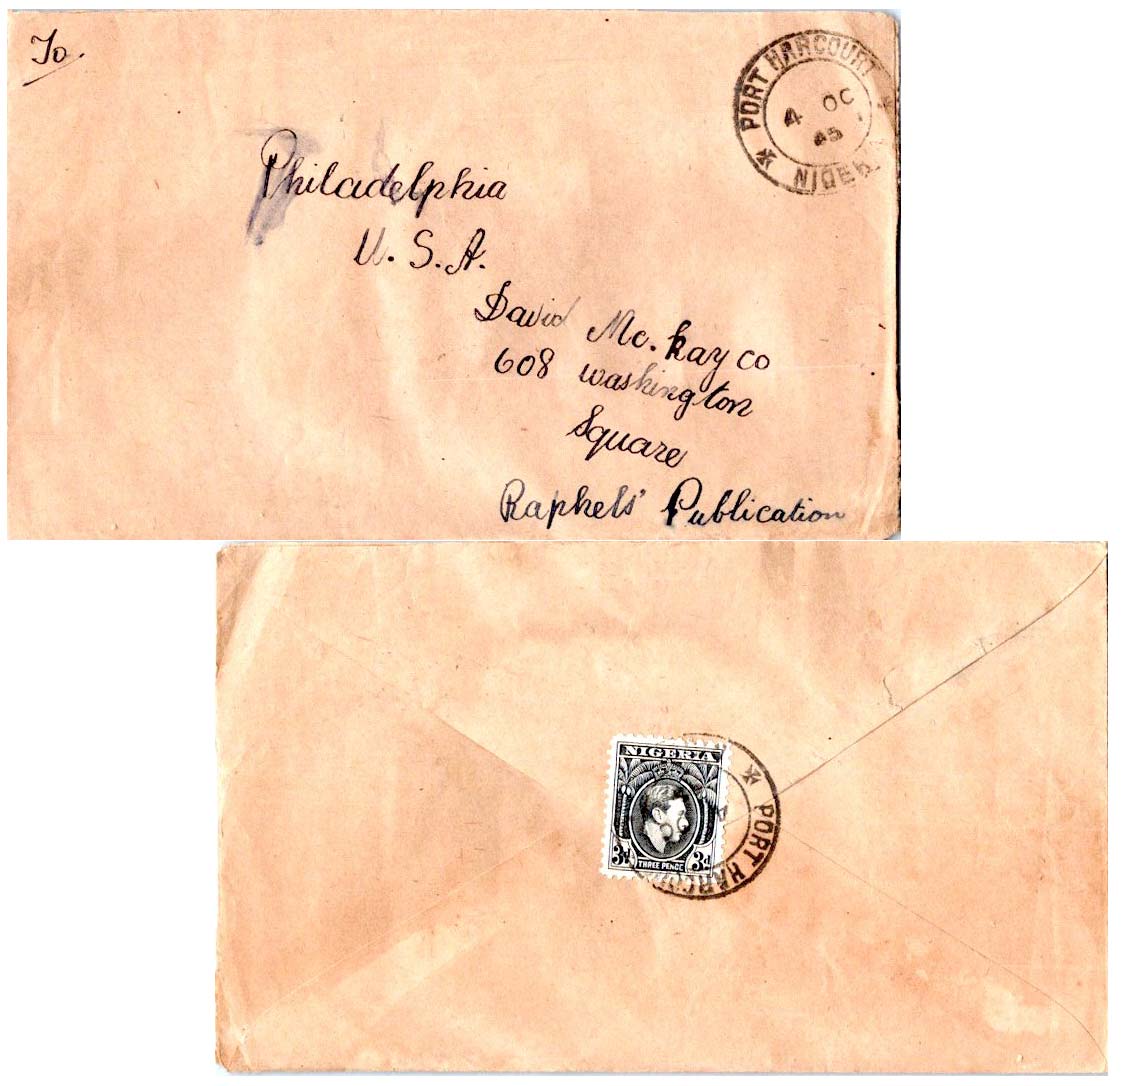 To.
PORT HARCOURT
4 OC
45
NIGERIA
Philadelphia
U. S. A.
David Mc. Kay co
608 washington
Square
Raphels' Publication
NIGERIA
3d THREE PENCE 3d
PORT HARCO